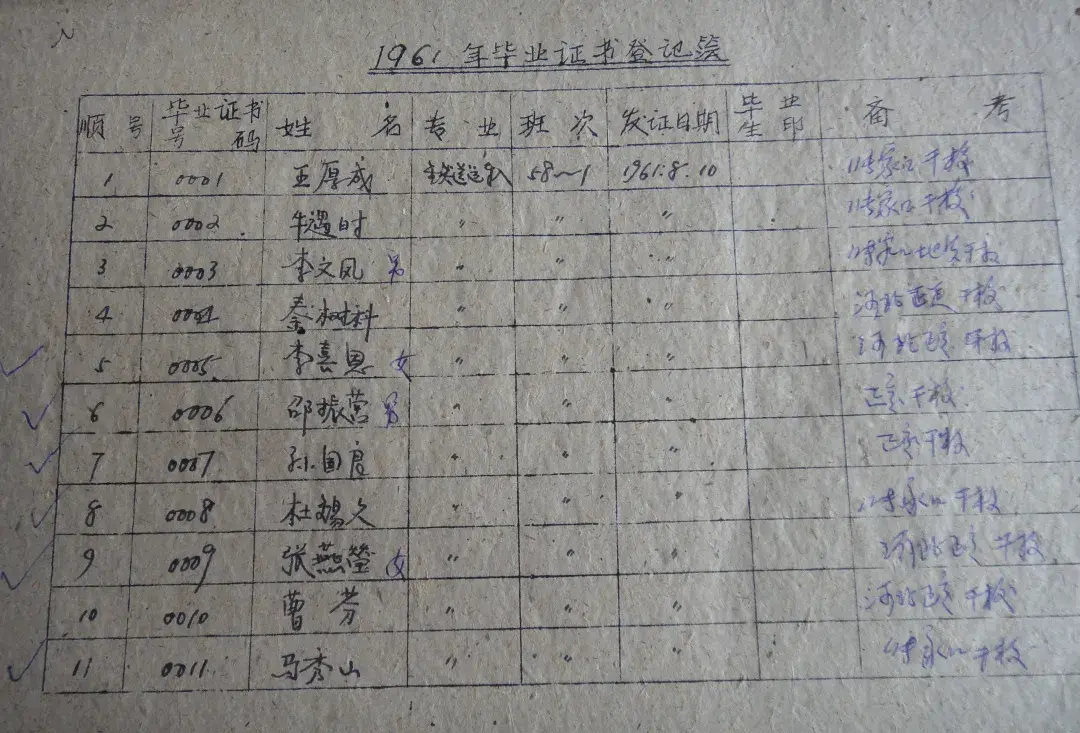 1961年毕业证书登记簿
顺号 毕业证书号码 姓名 专业 班次 发证日期 毕业生印 备考
1 0001 王厚成 58~1 1961.8.10 张家口干校
2 0002 牛遇时 〃 〃 〃 张家口干校
3 0003 李文凤 男 〃 〃 〃 张家口地质干校
4 0004 秦树科 〃 〃 〃 河北 干校
5 0005 李喜恩 女 〃 〃 〃 河北 干校
6 0006 邵振营 男 〃 〃 〃 干校
7 0007 孙国良 〃 〃 〃 干校
8 0008 杜锡久 〃 〃 〃 张家口干校
9 0009 张燕莹 女 〃 〃 〃 河北 干校
10 0010 曹芬 〃 〃 〃 河北 干校
11 0011 马秀山 〃 〃 〃 张家口干校